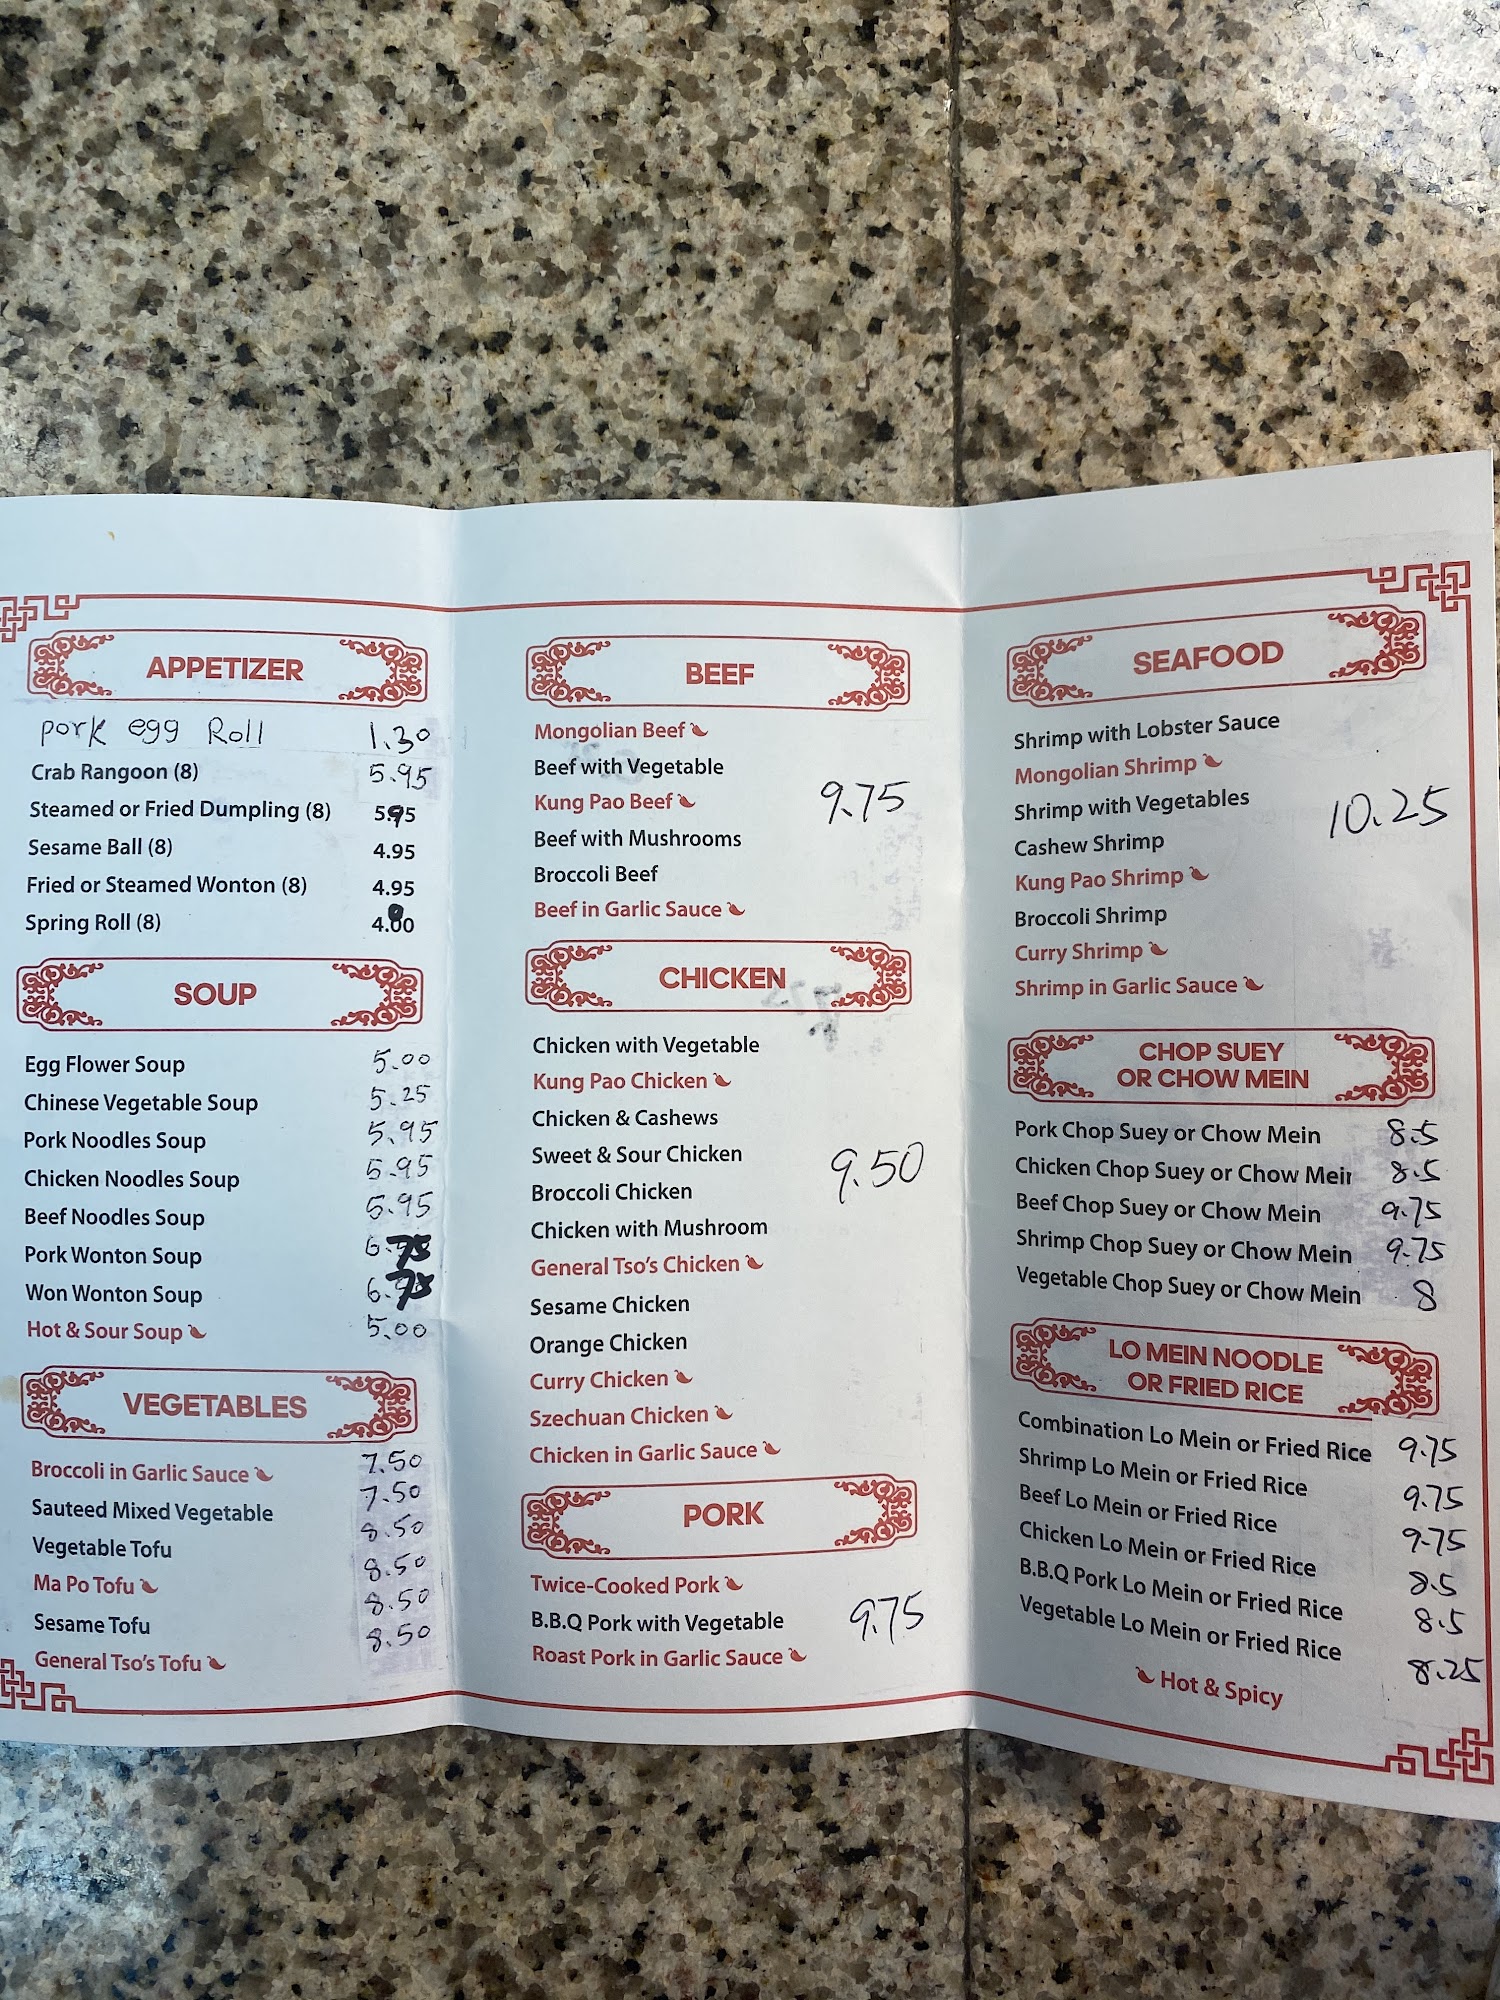 APPETIZER
pork egg Roll 1.30
Crab Rangoon (8) 5.95
Steamed or Fried Dumpling (8) 5.95
Sesame Ball (8) 4.95
Fried or Steamed Wonton (8) 4.95
Spring Roll (8) 4.00
SOUP
Egg Flower Soup 5.00
Chinese Vegetable Soup 5.25
Pork Noodles Soup 5.95
Chicken Noodles Soup 5.95
Beef Noodles Soup 5.95
Pork Wonton Soup 6.75
Won Wonton Soup 6.75
Hot & Sour Soup 5.00
VEGETABLES
Broccoli in Garlic Sauce 7.50
Sauteed Mixed Vegetable 7.50
Vegetable Tofu 8.50
Ma Po Tofu 8.50
Sesame Tofu 8.50
General Tso's Tofu 8.50
BEEF
Mongolian Beef
Beef with Vegetable
Kung Pao Beef 9.75
Beef with Mushrooms
Broccoli Beef
Beef in Garlic Sauce
CHICKEN
Chicken with Vegetable
Kung Pao Chicken
Chicken & Cashews
Sweet & Sour Chicken 9.50
Broccoli Chicken
Chicken with Mushroom
General Tso's Chicken
Sesame Chicken
Orange Chicken
Curry Chicken
Szechuan Chicken
Chicken in Garlic Sauce
PORK
Twice-Cooked Pork
B.B.Q Pork with Vegetable 9.75
Roast Pork in Garlic Sauce
SEAFOOD
Shrimp with Lobster Sauce
Mongolian Shrimp
Shrimp with Vegetables 10.25
Cashew Shrimp
Kung Pao Shrimp
Broccoli Shrimp
Curry Shrimp
Shrimp in Garlic Sauce
CHOP SUEY
OR CHOW MEIN
Pork Chop Suey or Chow Mein 8.5
Chicken Chop Suey or Chow Mein 8.5
Beef Chop Suey or Chow Mein 9.75
Shrimp Chop Suey or Chow Mein 9.75
Vegetable Chop Suey or Chow Mein 8
LO MEIN NOODLE
OR FRIED RICE
Combination Lo Mein or Fried Rice 9.75
Shrimp Lo Mein or Fried Rice 9.75
Beef Lo Mein or Fried Rice 9.75
Chicken Lo Mein or Fried Rice 8.5
B.B.Q Pork Lo Mein or Fried Rice 8.5
Vegetable Lo Mein or Fried Rice 8.25
Hot & Spicy